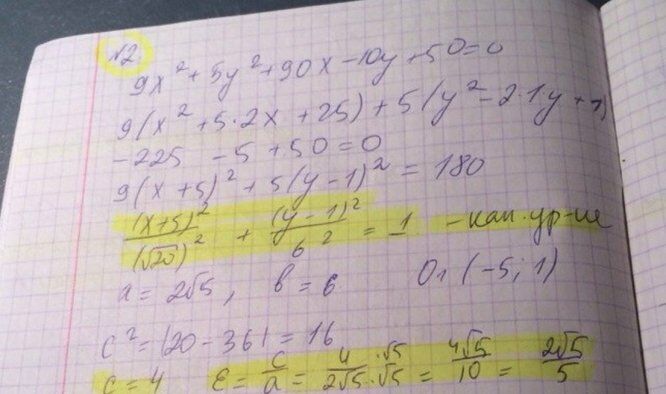 №2
9x² + 5y² + 90x - 10y + 50 = 0
9(x² + 5·2x + 25) + 5(y² - 2·1y + 1)
- 225 - 5 + 50 = 0
9(x + 5)² + 5(y - 1)² = 180
(x+5)²/(√20)² + (y - 1)²/6² = 1 - кан. ур-ие
a = 2√5, b = 6 O₁ (-5; 1)
c² = |20 - 36| = 16
c = 4 ε = c/a = 4·√5/2√5·√5 = 4√5/10 = 2√5/5